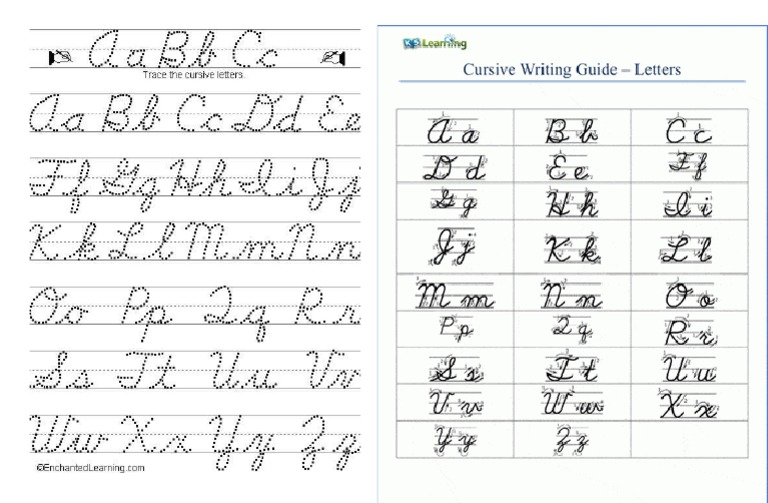 Aa Bb Cc
Trace the cursive letters.
Aa Bb Cc Dd Ee
Ff Gg Hh Ii Jj
Kk Ll Mm Nn
Oo Pp Qq Rr
Ss Tt Uu Vv
Ww Xx Yy Zz
©EnchantedLearning.com
K5 Learning
Cursive Writing Guide – Letters
A a B b C c
D d E e F f
G g H h I i
J j K k L l
M m N n O o
P p Q q R r
S s T t U u
V v W w X x
Y y Z z